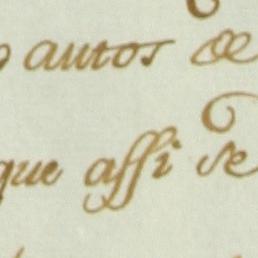 autos de
que assi se